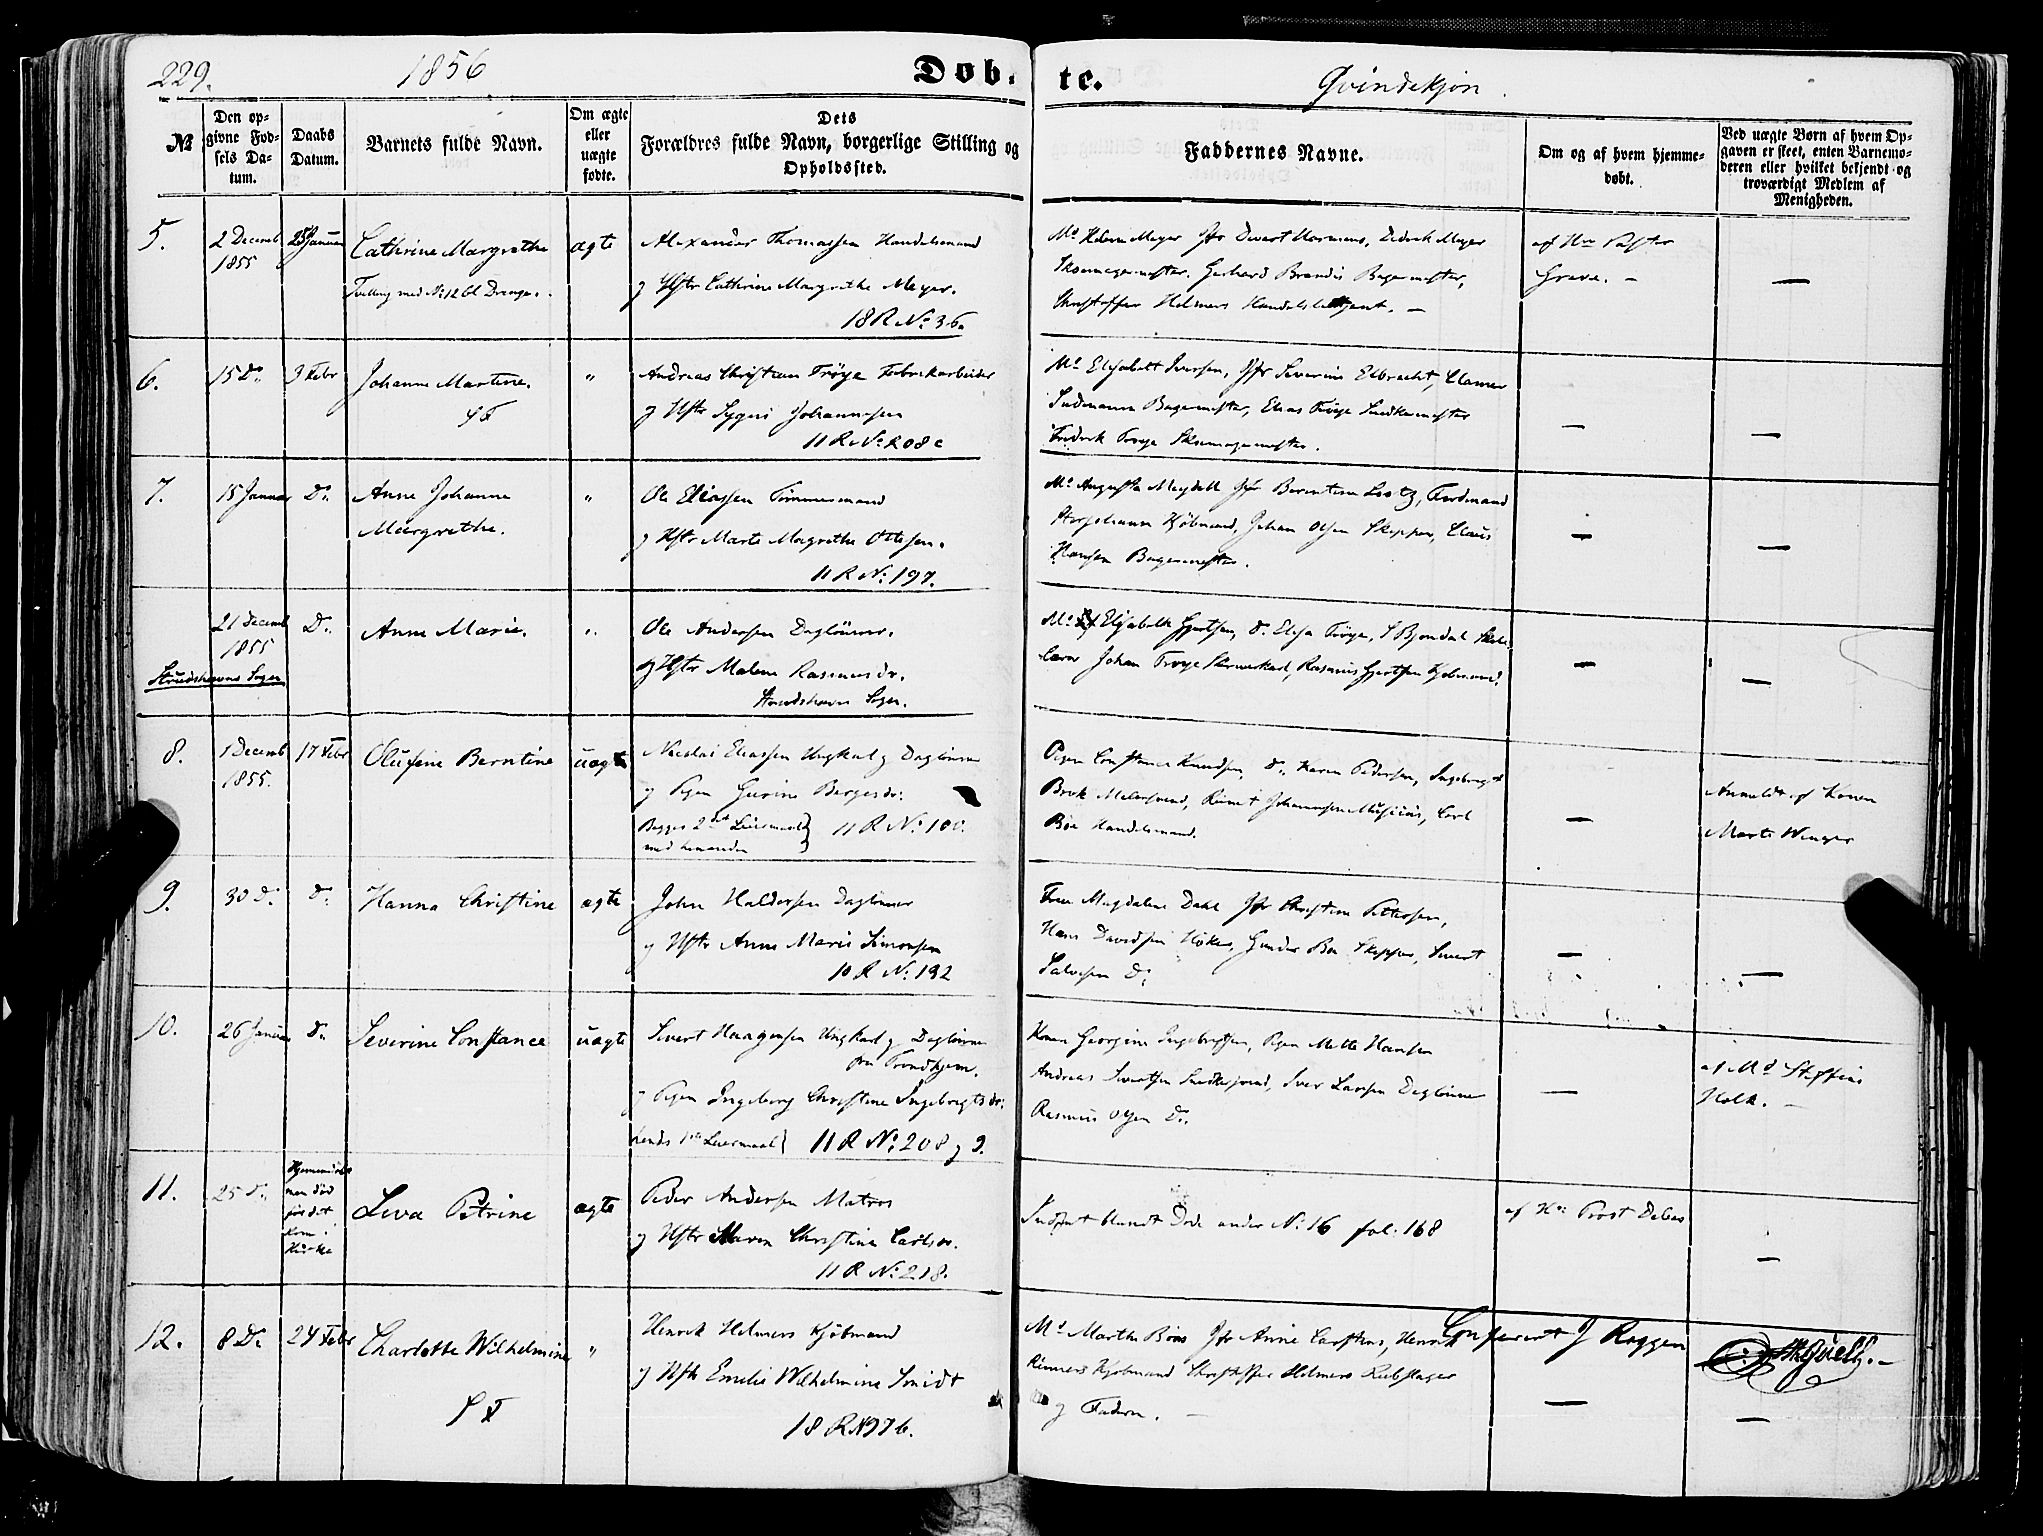 229.
1856
Døb-
te.
Qvindekjøn.
№
Den op-
givne Fød-
sels Da-
tum.
Daabs
Datum.
Barnets fulde Navn.
Om ægte
eller
uægte
fødte.
Dets
Forældres fulde Navn, borgerlige Stilling og
Opholdssted.
Faddernes Navne.
Om og af hvem hjemme-
døbt.
Ved uægte Børn af hvem Op-
gaven er skeet, enten Barnemo-
deren eller hvilket bekjendt og
troværdigt Medlem af
Menigheden.
5.
2 Decemb
1855
Januar
Cathrine Margrethe
Tvilling med No 12 bl Drenge.
ægte
Alexander Thomassen Handelsmand
og Hstr Cathrine Margrethe Meyer.
18 R No 36.
Md Helene Meyer Jfr Harmens, Didrik Meyer
Skomagermester, Gerhard Brandis Bagermester,
Christoffer Helmers Handelsbetjent. —
af Hr Pastor
Greve. —
—
6.
15 Do
3 Febr
Johanne Martine.
"
Andreas Christian Trøye Fabrikarbeider
og Hstr Johannesen
11 R No 208 c
Md Elisabeth Iversen, Jfr Severine Elbrecht,
Bagermester, Elias Trøye Snedkermester
Fredrik Troye Skomagermester.
—
—
7.
15 Januar
Do
Anne Johanne
Margrethe.
"
Ole Eliassen Tømmermand
og Hstr Marte Margrethe Ottesen.
11 R No 197.
Md Augusta Meydell Jfr Berentine Ferdinand
Kjøbmand, Johan Olsen Skipper, Claus
Hansen Bagermester.
—
—
21 Decemb
1855
Do
Anne Marie.
"
Ole Andersen Daglønner.
og Hstr Malene Rasmusdr.
Strudshavns Sogn.
Strudshavns Sogn
Md Elisabeth Gjertsen, Do Elisa Trøye, S Bjøndal Skole
lærer Johan Troye Rasmus Gjertsen Kjøbmand.
—
—
8.
1 Decemb
1855.
17 Febr
Olufine Berntine
uægte
Nicolai Eliassen Ungkarl og Daglønner
og Pigen Gurine Bergesdr.
Begges 2det Leiermaal
med hinanden
11 R No 100.
Pigen Constance Knudsen, Do Karen Pedersen, Ingebrigt
Brok Malersvend, Johannesen Musicus, Carl
Bøe Handelsmand.
—
Anmeldt af Konen
Marte Winger
9.
30 Do
Do
Hanna Christine
ægte
John Haldorsen Dagløner
og Hstr Anne Marie Simonsen
10 R No 192
Frue Magdalene Dahl Jfr Christine Pettersen,
Hans Davidsen Høker, Gunder Boe Skipper, Sivert
Salvesen Do
—
—
10.
26 Januar
Do
Severine Constance
uægte
Sivert Haagensen Ungkarl og Dagløner
fra Trondhjem.
og Pigen Ingeborg Christine Ingebrigtsdr.
hendes 1ste Leiermaal
11 R No 208 og 9.
Konen Georgine Ingebrigtsen, Pigen Mette Hansen
Andreas Sivertsen Snedkersvend, Iver Larsen Dagløner
Rasmus Olsen Do.
—
af Md Steffine
Holk. —
11.
25 Do
Hjemmedøbt
men død
før det
kom i
Kirke
Leva Petrine
ægte
Peder Andersen Matros
og Hstr Maren Christine Carlsdr.
11 R No 218.
Indført blandt Døde under No 16 fol: 168
af Hr Provst Debes
—
12.
8 Do
24 Febr
Charlotte Wilhelmine
"
Henrik Helmers Kjøbmand
og Hstr Emilie Wilhelmine Smidt
18 R N 97 b.
Md Marthe Böes Jfr Anne Carstens, Henrik
Rimers Kjøbmand Christoffer Helmers Rebslager
og Faderen. —
Confereret J Roggen
—
—